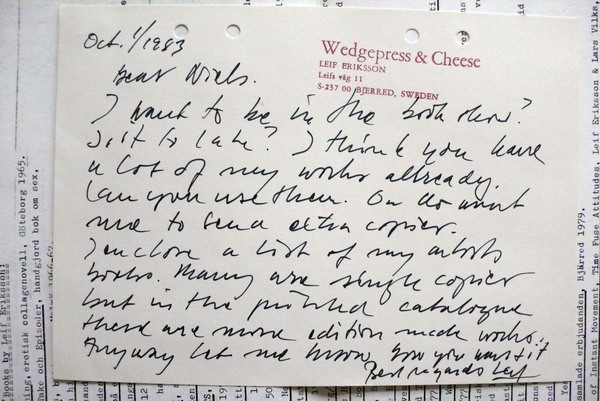 Oct. 1/1983
Wedgepress & Cheese
LEIF ERIKSSON
Leifs väg 11
S-237 00 BJERRED, SWEDEN
Dear Niels.
I want to be in the book show?
Is it to late? I think you have
a lot of my works allready.
Can you use them. Or do want
me to send extra copies.
I enclose a list of my artists
books. Many are single copies
but in the printed catalogue
there are more edition made works..
Anyway let me know how you want it
Best regards Leif
by Leif Eriksson:
erotisk collagenovell, Göteborg 1965.
och Episoder, handgjord bok om sex,
samlade erbjudanden, Bjärred 1979.
of Instant Movement, Time Fuse Attitudes, Leif Eriksson & Lars Vilks,